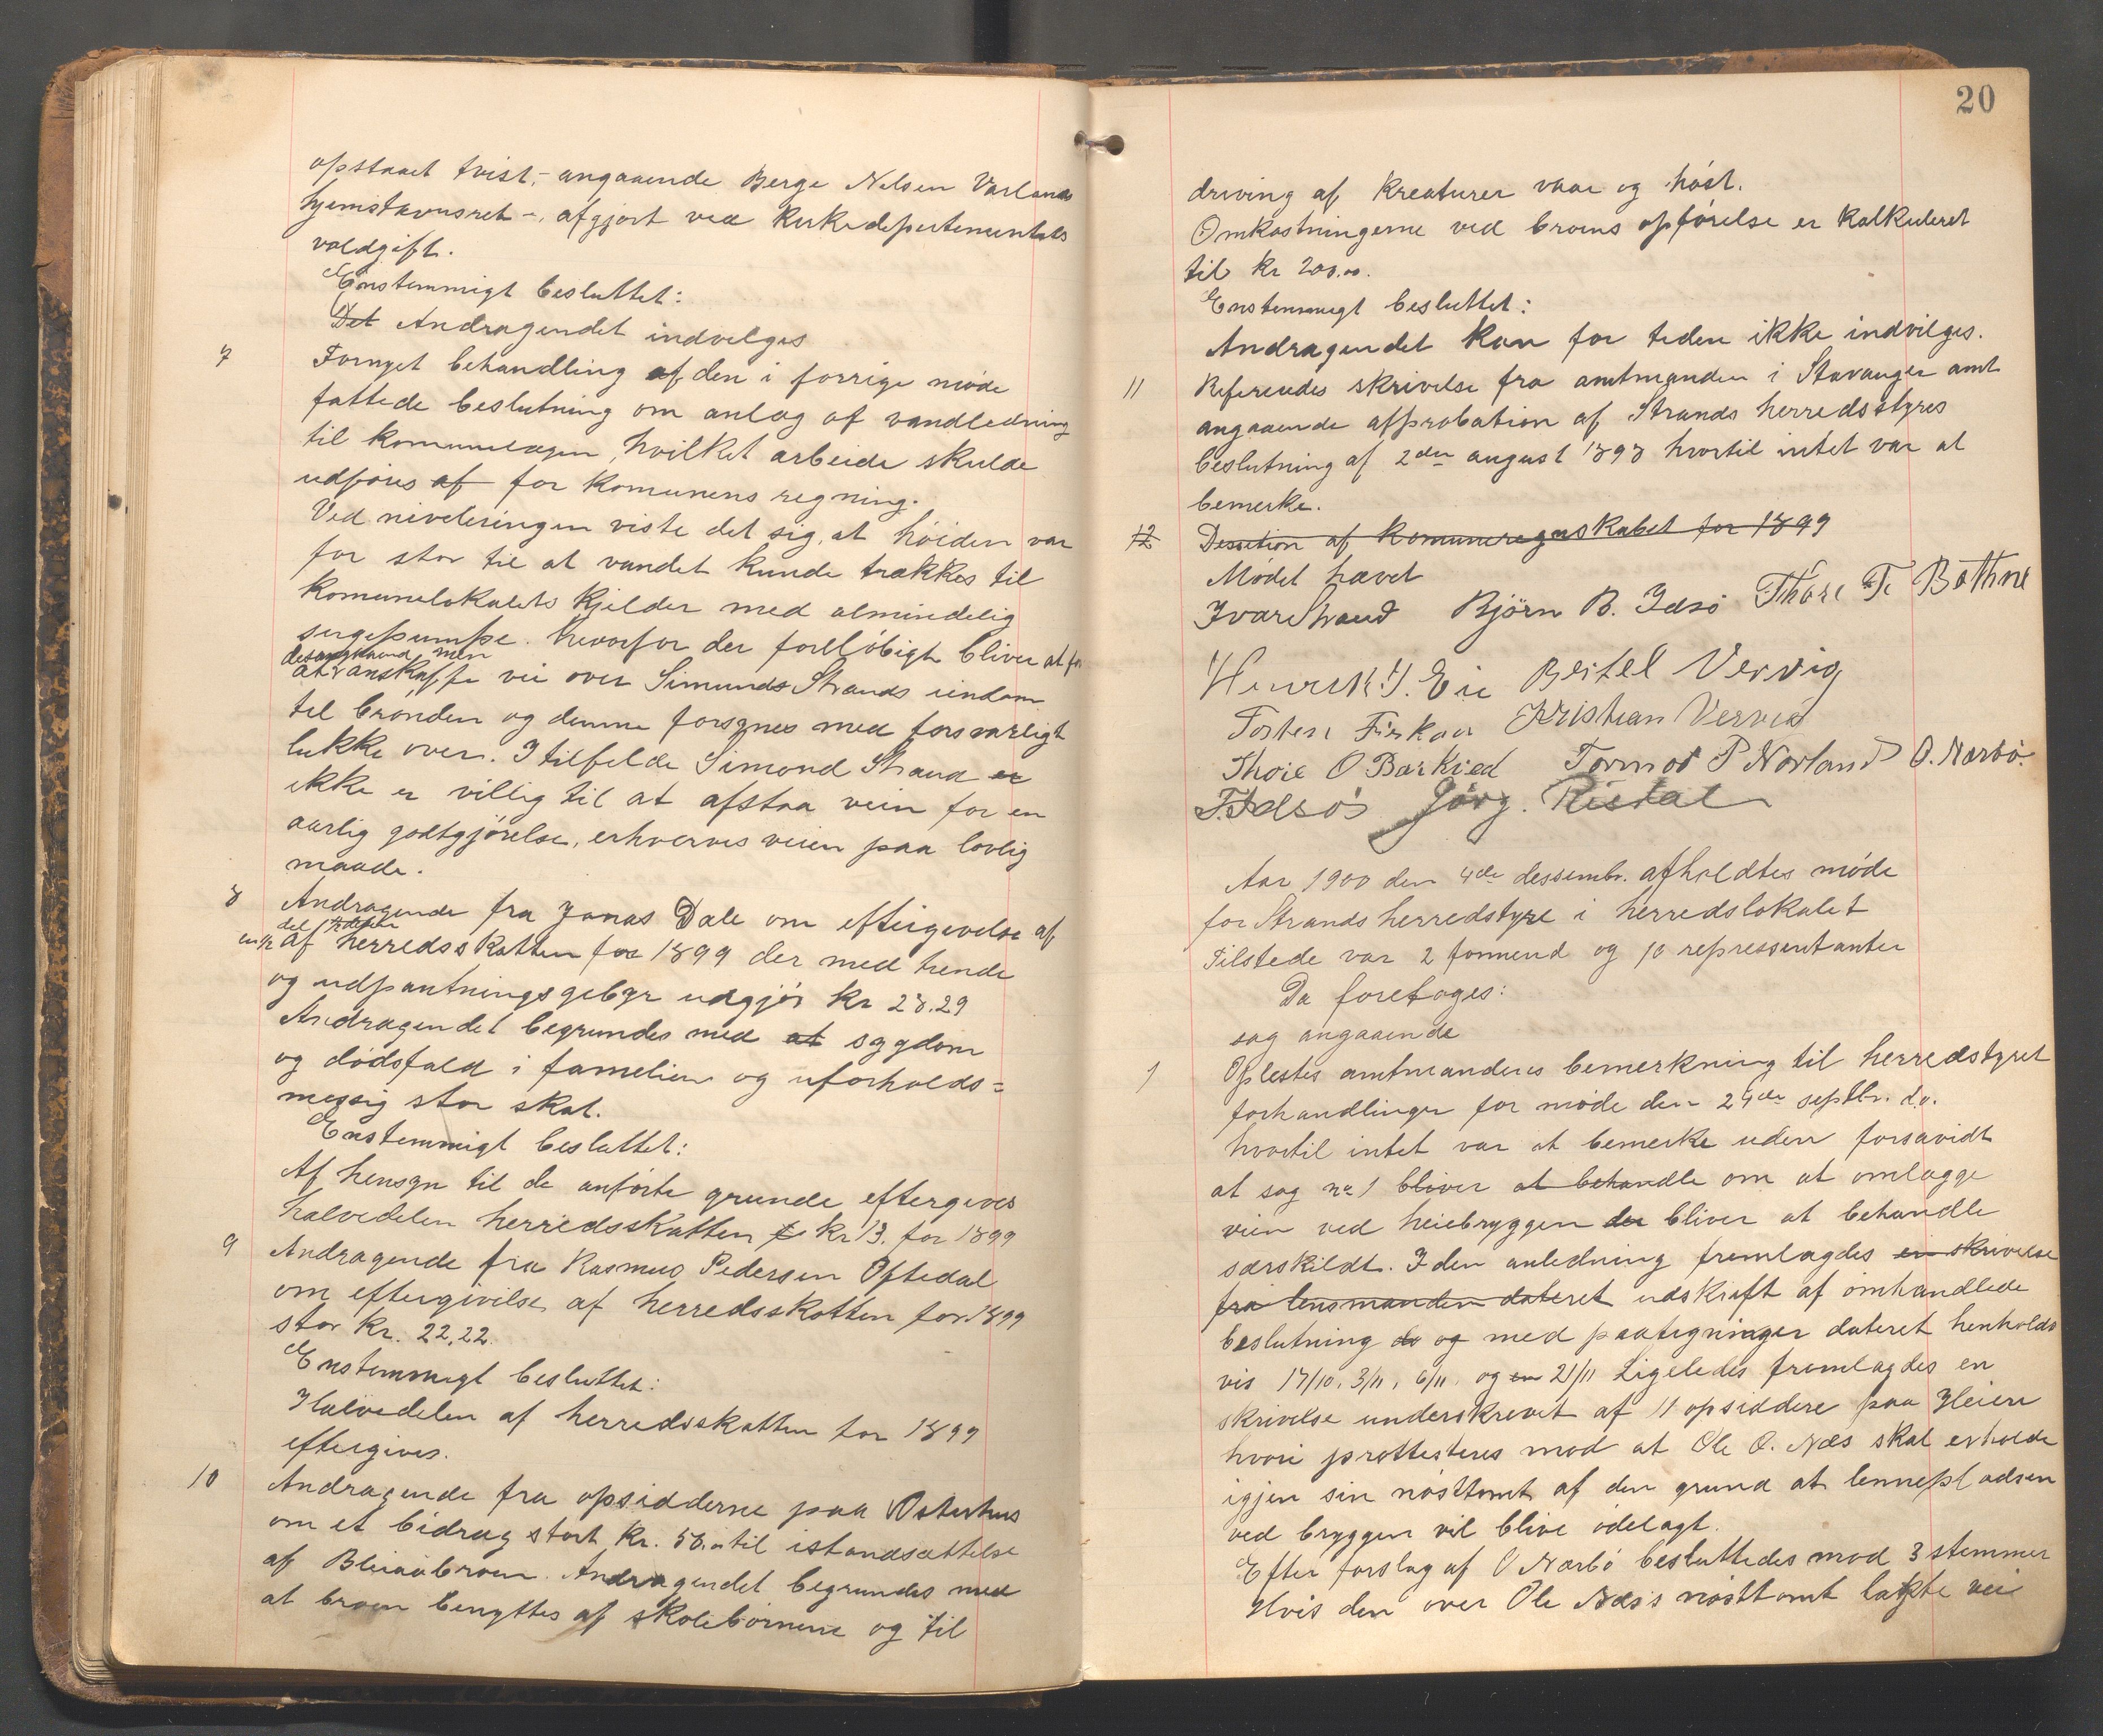 opstaaet tvist,- angaaende Berge Nelsen Varlands
hjemstavnsret -, afgjort ved kirkedepartementets
voldgift.
Enstemmigt besluttet:
Det Andragendet indvelges
7 Fornyet behandling af den i forrige møde
fattede beslutning om anlæg af vandledning
til komunelagen, hvilket arbeide skulde
udføres af for komunens regning.
Ved niveleringen viste det sig, at høiden var
for stor til at vandet kunde trækkes til
komunelokalets kjelder med almindelig
sugepumpe. hvorfor der foreløbigt bliver at for
desangaaend men
at anskaffe vei over Simunds Strands eiendom
til brønden og denne forsynes med forsvarligt
lukke over. I tilfelde Simond Strand er
ikke er villig til at afstaa vein for en
aarlig godtgjørelse, erhverves veien paa lovlig
maade.
8 Andragende fra Jonas Dale om eftergivelse af
af herredsskatten for 1899 der med trende
og udpantningsgebyr udgjør kr 28.29
Andragendet begrundes med at sygdom
og dødsfald i famelien og uforholds=
messig stor skat.
Enstemmigt besluttet:
Af hensyn til de anførte grunde eftergives
halvedelen herredsskatten kr 13. for 1899
9 Andragende fra Rasmus Pedersen Oftedal
om eftergivelse af herredsskatten for 1899
stor kr. 22,22.
Enstemmigt besluttet:
Halvedelen af herredsskatten for 1899
eftergives.
10 Andragende fra opsidderne paa Østerhus
om et bidrag stort kr. 50.- til istandsættelse
af Bleiaabroen. Andragendet begrundes med
at broen benyttes af skolebørnene og til
20
driving af kreaturer vaar og høst.
Omkostningerne ved broens opførelse er kalkuleret
til kr 200.00.
Enstemmigt besluttet:
Andragendet kan for tiden ikke indvilges.
11 Referendes skrivelse fra amtmanden i Stavanger amt
angaaende approbation af Strands herredsstyres
beslutning af 2den august 1898 hvortil intet var at
bemerke.
12 Desition af komuneregnskabet for 1899
Mødet hævet
Ivar Strand Bjørn B. Idsø Thore T. Bøthne
Henrik J. Eie Bertel Vervig
Torsten Fiskaa Kristian Vervig
Thore O Barkved Tormod P Norland O. Nærbø.
T. Idsøs Jörg. Ristal
Aar 1900 den 4de dessembr. afholdtes møde
for Strands herredstyre i herredslokalet
Tilstede var 2 formend og 10 repressentanter
Da foretoges:
sag angaaende
1 Oplestes amtmandens bemerkning til herredstyret
forhandlinger for møde den 24de septbr. d.a.
hvortil intet var at bemerke uden forsavidt
at sag nr 1 bliver at behandle om at omlægge
veien ved heiebryggen der bliver at behandle
særskildt. I den anledning fremlagdes en skrivelse
fra lensmanden dateret udskrift af omhandlede
beslutning og med paategninger dateret henholds
vis 17/10, 3/11, 6/11, og 21/11 Ligeledes fremlagdes en
skrivelse underskrevet af 11 opsiddere paa Heien
hvori prottesteres mod at Ole O. Næs skal erholde
igjen sin nøsttomt af den grund at lennepladsen
ved bryggen vil blive ødelagt.
Efter forslag af O Nærbø besluttedes mod 3 stemmer
Hvis den over Ole Næs's nøsttomt lagte vei